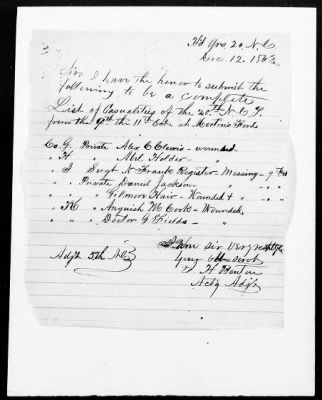 Hd Qrs. 20. N.C.
Dec. 12. 1863
Sir, I have the honor to submit the
following to be a complete
List of Casualties of the 20th N.C.T.
from the 9th the 11th at Morton's Ford
Co. G. Private Alex C Clewis - wounded
" H " Abel Holder - "
" I Sergt N Frank Register - Missing -
" " Private Daniel Jackson - "
" " " Gilmore Hair - Wounded +
" K " Anguish M. Cook - Wounded
" " " Doctor G Fields - "
I am sir very respty
Your obt servt
H Benton
Actg Adjt
Adjt